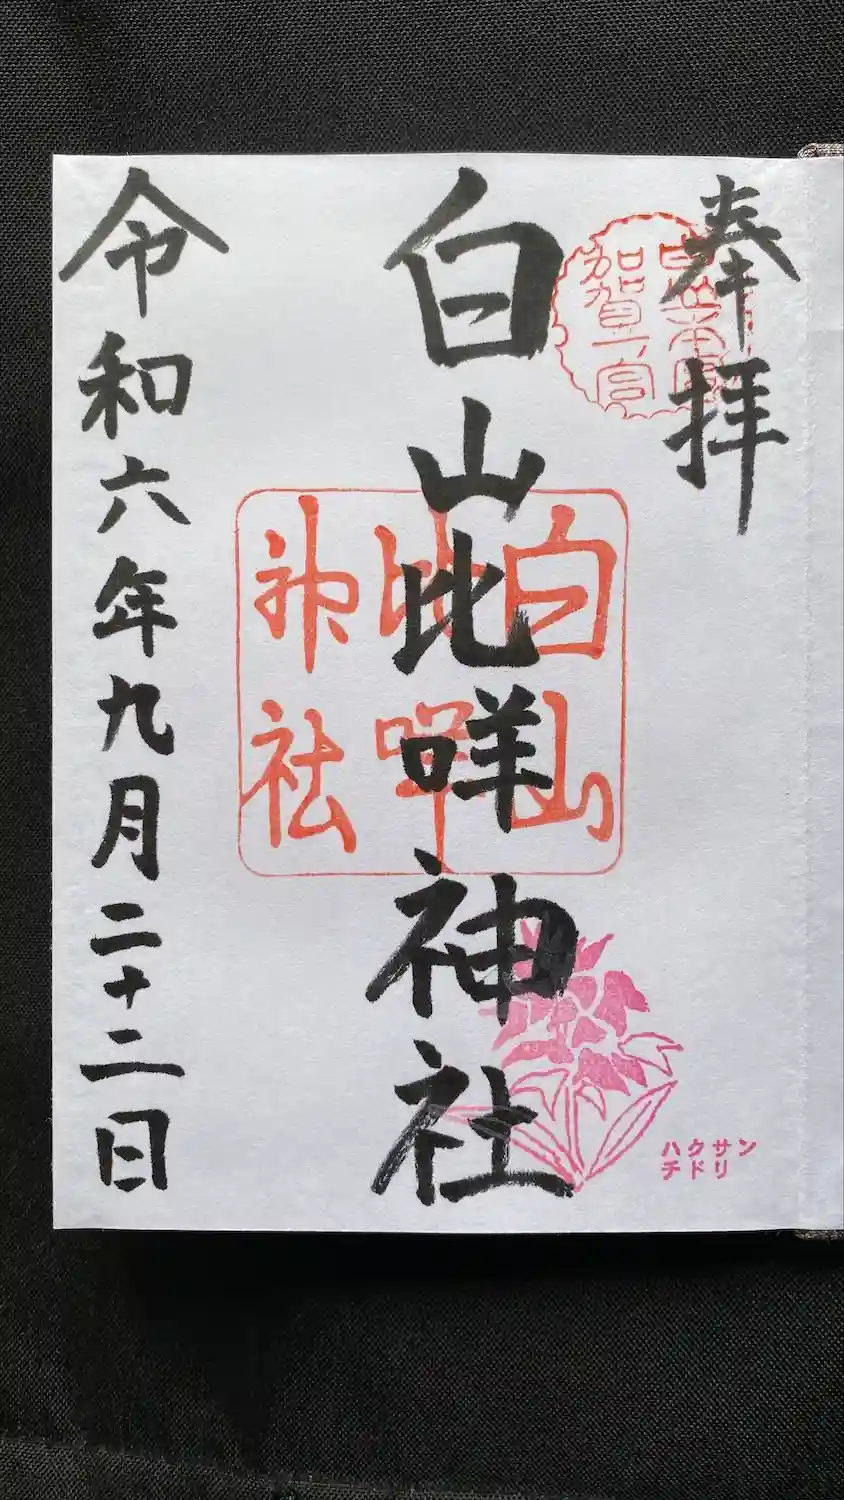 奉拝
白山本宮
加賀一ノ宮
白山比咩神社
白山
比咩
神社
ハクサン
チドリ
令和六年九月二十二日